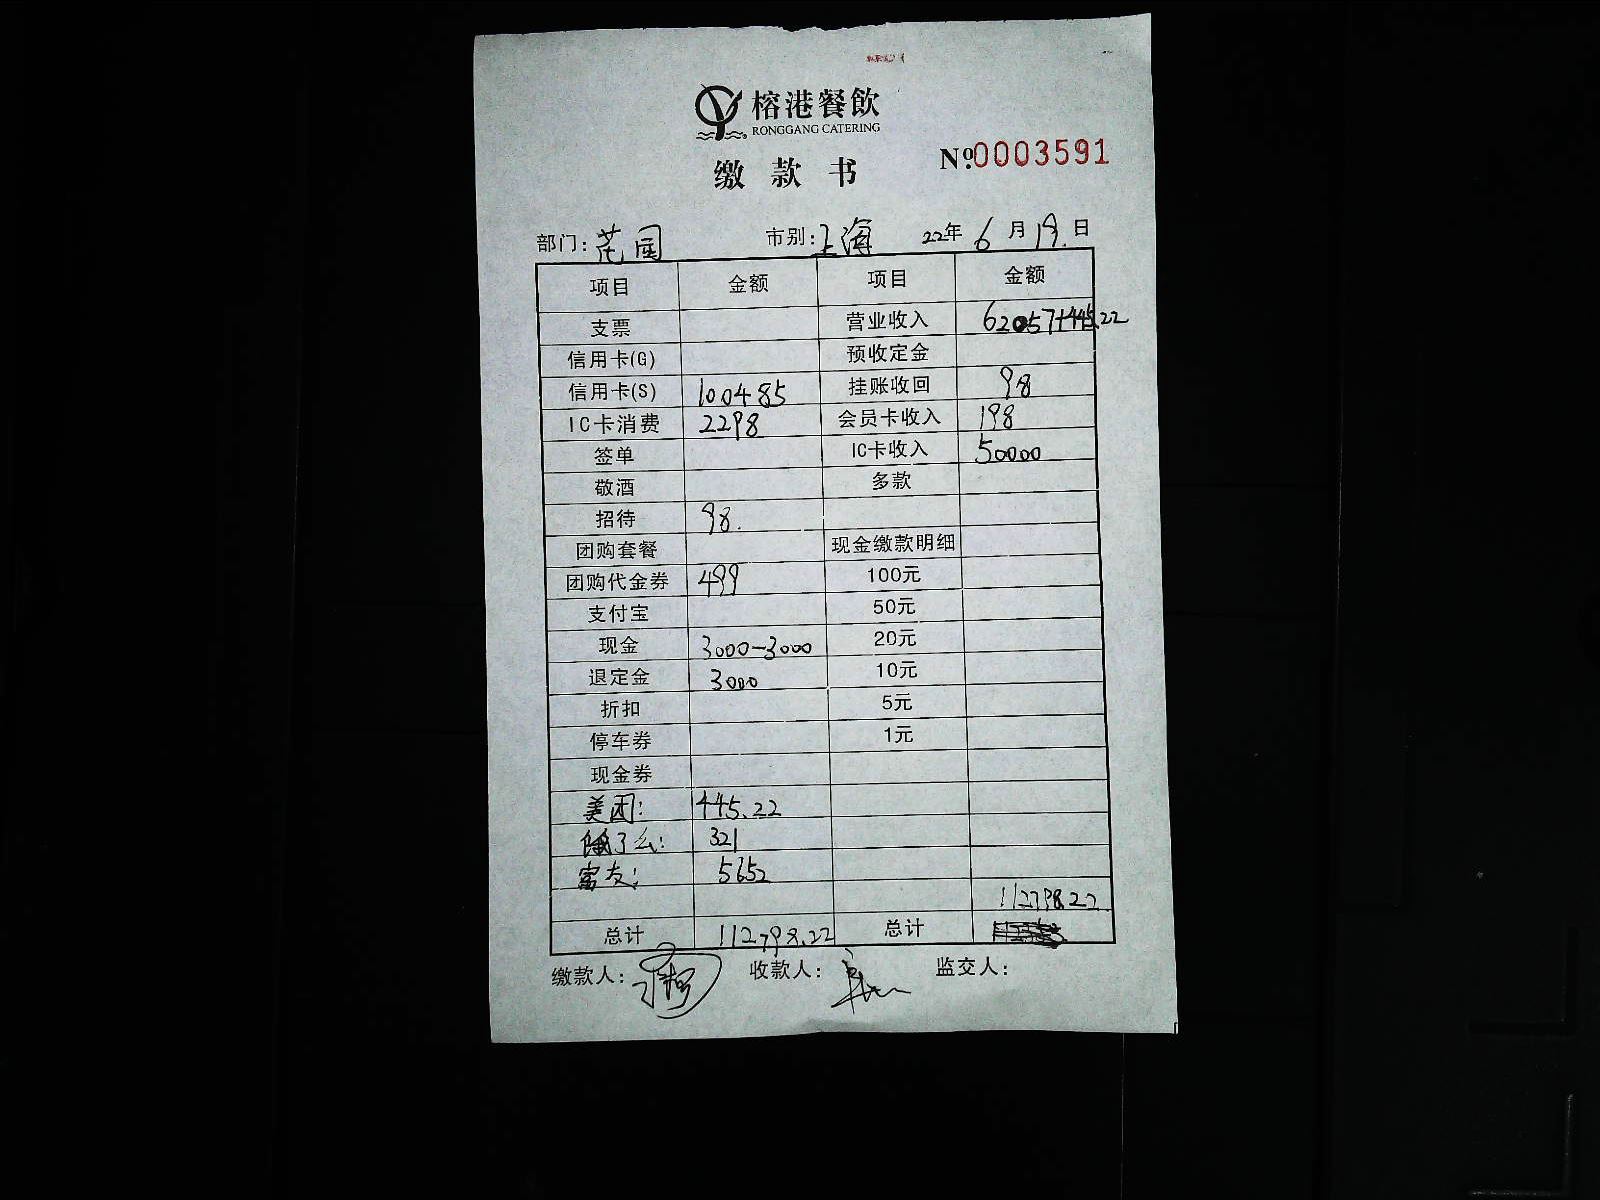 榕港餐飲
RONGGANG CATERING
缴款书
№0003591
部门：花园 市别：上海 22年6月19日
项目 金额 项目 金额
支票 营业收入 62057+445.22
信用卡(G) 预收定金
信用卡(S) 100485 挂账收回 98
IC卡消费 2298 会员卡收入 198
签单 IC卡收入 50000
敬酒 多款
招待 98.
团购套餐 现金缴款明细
团购代金券 499 100元
支付宝 50元
现金 3000-3000 20元
退定金 3000 10元
折扣 5元
停车券 1元
现金券
美团： 445.22
饿了么： 321
富友： 5652
112798.22
总计 112798.22 总计
缴款人： 收款人： 监交人：